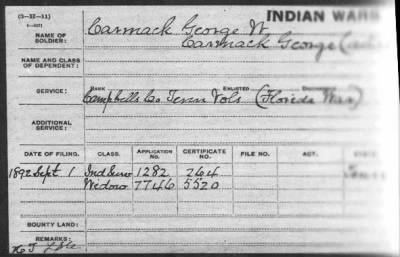 (3-II-33)
INDIAN WARS
NAME OF SOLDIER: Carmack George W.
Carmack George
NAME AND CLASS OF DEPENDENT:
SERVICE: RANK ENLISTED
Campbells Co Tenn Vols (Florida War)
ADDITIONAL SERVICE:
DATE OF FILING. CLASS. APPLICATION NO. CERTIFICATE NO. FILE NO. ACT.
1892 Sept 1 Ind Surv 1282 264
Widow 7746 5520
BOUNTY LAND:
REMARKS: